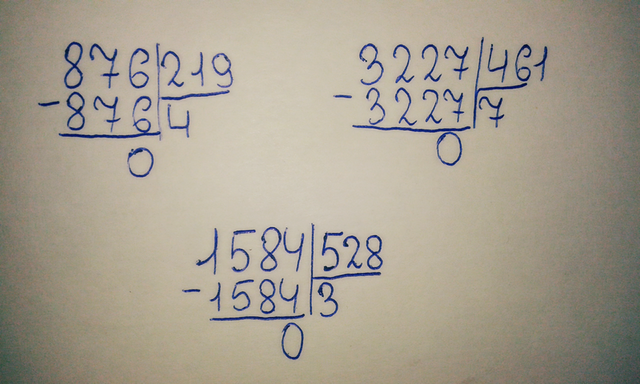 876 219
-876 4
0
3227 461
-3227 7
0
1584 528
-1584 3
0